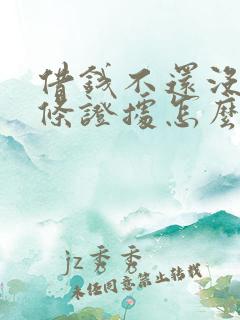 借錢不還沒
條證據怎麼
jz秀秀
未经同意禁止转载